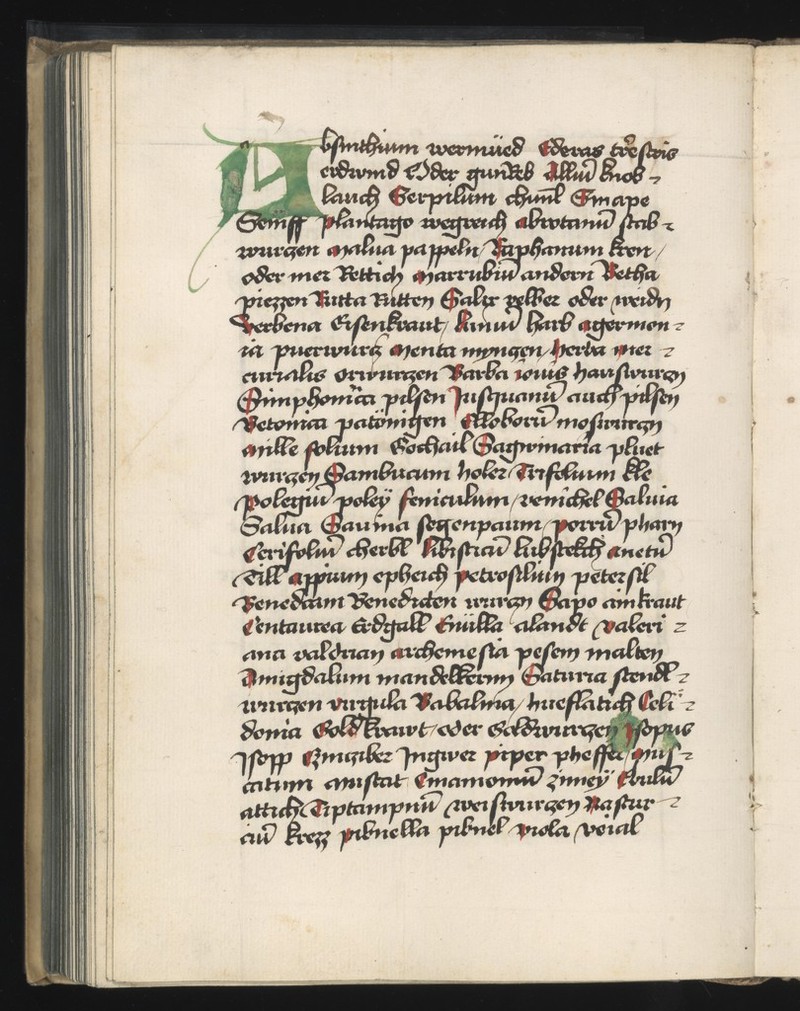 Absinthium wermüed Ederas terrestris
erdwind Oder gundreb Alliuȝ knob-
lauch Serpilum chunl Sinape
Seniff plantago wegreich abrotanū stab-
wurczen malua pappeln Raphanum kren
oder mer Rettich marrubiū andorn Betha
piezzen Rutta Rutten Salix velber oder weidn
Verbena Eisenkraut linuȝ harb agermon-
ia puerwurcz menta myngen herba mer-
curialis orwurczen Barba iouis hauswurczn
Simphonica pilsen Jusquianū auch pilsen
Betonica patönigen Elloborū moswurczn
mille folium Gochail Sagwinaria pluet
wurczen Sambucum holer Trifolium kle
Polegiū poley feniculum venichel Saluia
Salua Sauina segenpaum porrū pharn
Cerifoliū cherbl libisticū lubstekch anetū
Till appium epheich petrosilium petersil
Benedictam Benedicten wurczn Sapo ainkraut
Centaurea Erdgall Enulla alandt valeri-
ana valdrian archemesia pesem malten
Amigdalum mandelkernn Saturia stendl-
wurczen virgula Babalina hueflatich Celi-
donia Goldkrawt oder Goldwurczen Isopus
Isopp Czinziber Ingwer piper pheffer mus-
catum muscat Cinamomū zimey Ebulū
attich Diptampnū weiswurczen Nastur-
ciū krezz pibnella pibnel viola veial